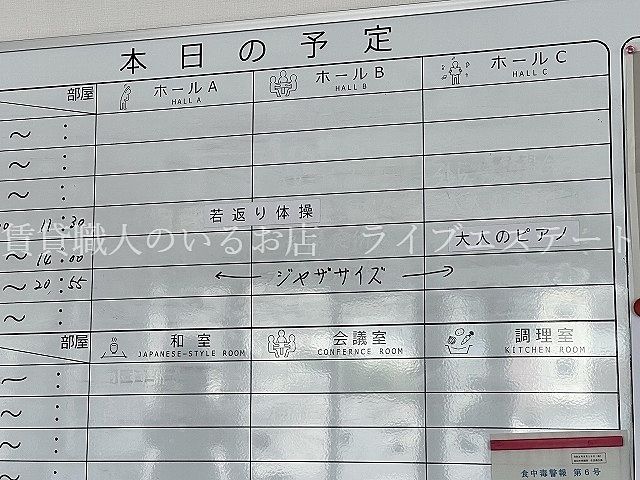 本日の予定
部屋 ホールA ホールB ホールC
HALL A HALL B HALL C
〜 :
〜 :
〜 :
11:30 若返り体操
賃貸職人のいるお店 ライブエステート
〜 14:00 大人のピアノ
〜 20:55 ← ジャザサイズ →
〜 :
部屋 和室 会議室 調理室
JAPANESE-STYLE ROOM CONFERNCE ROOM KITCHEN ROOM
〜 :
〜 :
〜 :
〜 :
食中毒警報 第6号